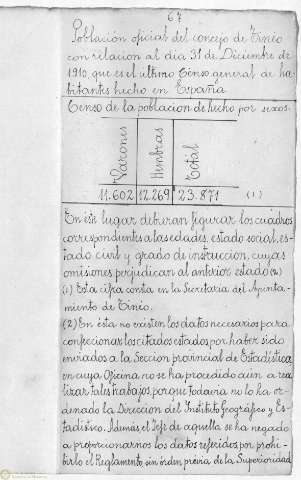 67
Población oficial del concejo de Tineo
con relacion al dia 31 de Diciembre de
1910, que es el ultimo Censo general de ha-
bitantes hecho en España
Censo de la poblacion de hecho por sexos.
Varones Hembras Total
11.602 12.269 23.871 (1)
En este lugar deberan figurar los cuadros
correspondientes a las edades, estado social, es-
tado civil y grado de instruccion, cuyas
omisiones perjudican al anterior estado (2)
(1) Esta cifra consta en la Secretaria del Ayunta-
miento de Tineo.
(2) En ésta no existen los datos necesarios para
confeccionar los citados estados por haber sido
enviados a la Seccion provincial de Estadística
en cuya Oficina no se ha procedido aún a rea-
lizar tales trabajos, porque todavia no lo ha or-
denado la Direccion del Instituto Geográfico y Es-
tadístico. Además el Jefe de aquella se ha negado
a proporcionarnos los datos referidos por prohi-
birlo el Reglamento, sin orden previa de la Superioridad